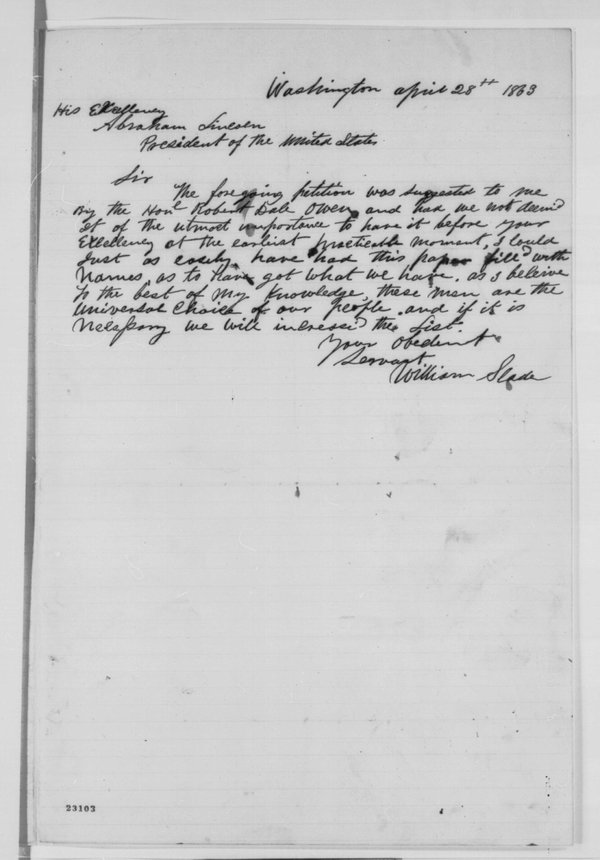 Washington april 28th 1863
His Exellency
Abraham Lincoln
President of the United States.
Sir
The foregoing petition was suggested to me
By the Honl Robert Dale Owen, and had we not deem'd
it of the utmost importance to have it before your
Exellency at the earliest practicable moment, I Could
Just as easily have had this paper fill'd with
Names, as to have got what we have. as I beleive
to the best of my Knowledge, these men are the
Universal Choice of our people. and if it is
Nelssary we will incress'd the List.
Your Obedent
Servant
William Slade
23103